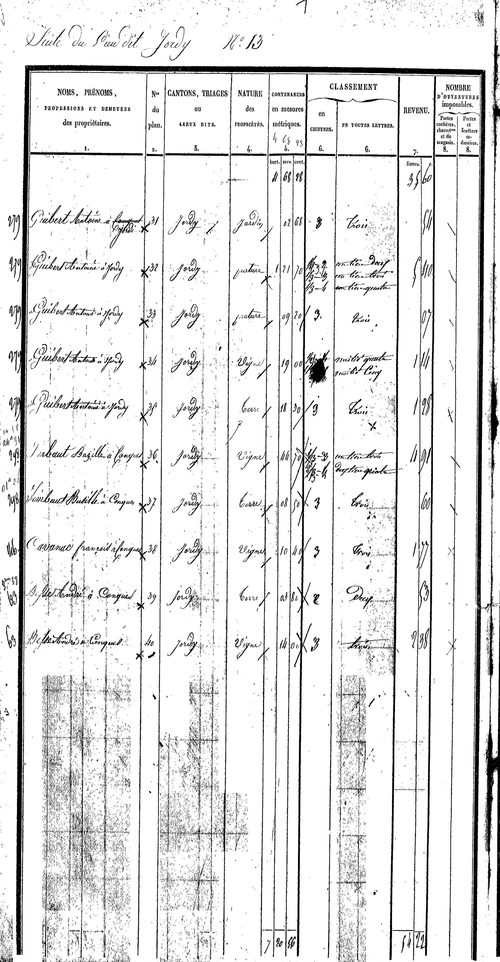 Suite du Lieu dit Jordy N.º 13
NOMS, PRÉNOMS, PROFESSIONS ET DEMEURES des propriétaires. 1.
Nos du plan. 2.
CANTONS, TRIAGES ou LIEUX DITS. 3.
NATURE des PROPRIÉTÉS. 4.
CONTENANCES en mesures métriques. 5.
CLASSEMENT
en CHIFFRES. 6.
EN TOUTES LETTRES. 6.
REVENU. 7.
NOMBRE D'OUVERTURES imposables.
Portes cochères, charrettes et de magasin. 8.
Portes et fenêtres ordinaires. 8.
hect. ares. cent.
francs.
4 68 98 35 60
279 Guibert Antoine à Jordy 31 Jordy Jardin 02 68 3 trois 54
279 Guibert Antoine à Jordy 32 Jordy pature 1 21 70 1/3-2 un tiers deux 5 40
1/3-3 un tiers trois
1/3-4 un tiers quatre
279 Guibert Antoine à Jordy 33 Jordy pature 09 20 3 trois 07
279 Guibert Antoine à Jordy 34 Jordy Vigne 19 00 moitié quatre 1 14
moitié Cinq
279 Guibert Antoine à Jordy 35 Jordy terre 18 30 3 Trois 1 28
Bazille à Conques 36 Jordy Vigne 44 70 1/3-3 un tiers trois 4 91
deux tiers quatre
Bazille à Conques 37 Jordy Terre 08 50 3 trois 60
Cavanac françois à Conques 38 Jordy Vigne 10 40 3 trois 1 77
63 André à Conques 39 Jordy terre 03 80 2 Deux 53
63 André à Conques 40 Jordy Vigne 14 00 3 trois 2 38
7 20 56 54 22